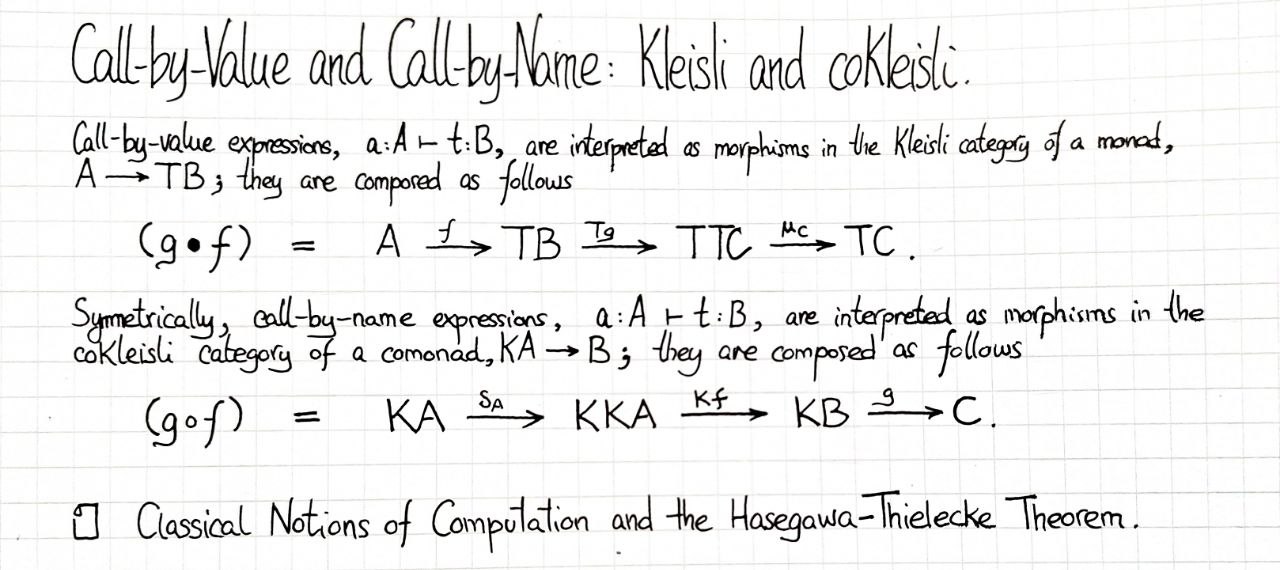 Call-by-Value and Call-by-Name: Kleisli and coKleisli.
Call-by-value expressions, a:A ⊢ t:B, are interpreted as morphisms in the Kleisli category of a monad,
A → TB; they are composed as follows
(g•f) = A —f→ TB —Tg→ TTC —μ_C→ TC.
Symmetrically, call-by-name expressions, a:A ⊢ t:B, are interpreted as morphisms in the
coKleisli category of a comonad, KA → B; they are composed as follows
(g∘f) = KA —δ_A→ KKA —Kf→ KB —g→ C.
Classical Notions of Computation and the Hasegawa-Thielecke Theorem.